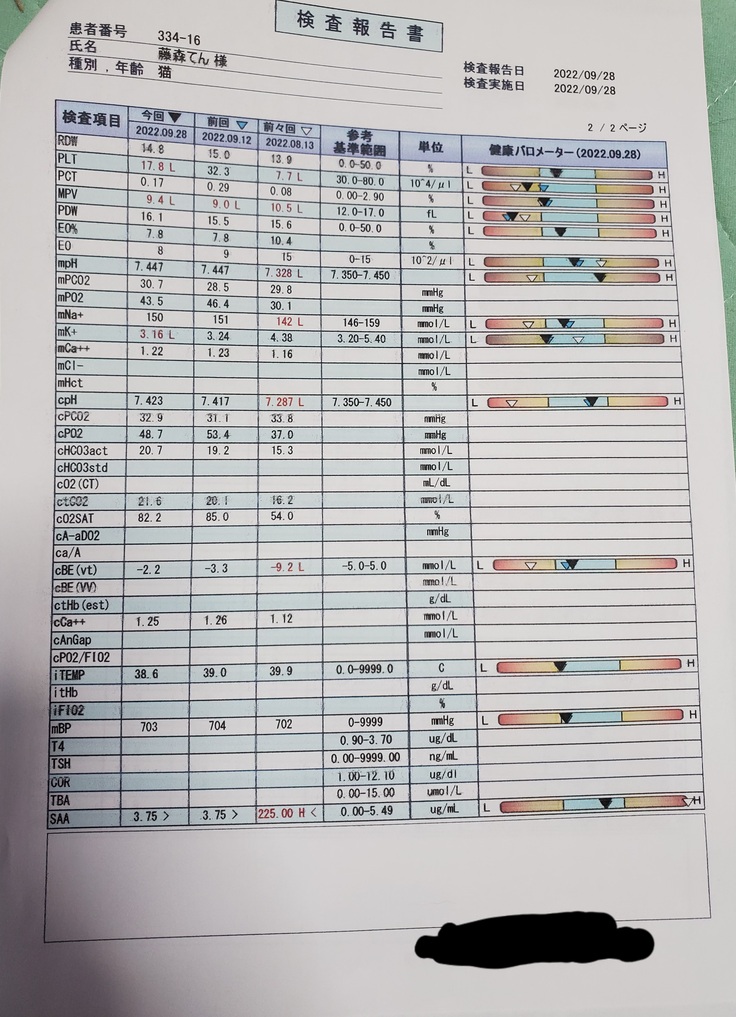 検査報告書
患者番号 334-16
氏名 藤森てん 様
種別 . 年齢 猫
検査報告日 2022/09/28
検査実施日 2022/09/28
2 / 2 ページ
検査項目 今回▼ 2022.09.28 前回▽ 2022.09.12 前々回▽ 2022.08.13 参考基準範囲 単位 健康バロメーター (2022.09.28)
RDW 14.8 15.0 13.9 0.0-50.0 % L H
PLT 17.8 L 32.3 7.7 L 30.0-80.0 10^4/μl L H
PCT 0.17 0.29 0.08 0.00-2.90 % L H
MPV 9.4 L 9.0 L 10.5 L 12.0-17.0 fL L H
PDW 16.1 15.5 15.6 0.0-50.0 % L H
EO% 7.8 7.8 10.4 %
EO 8 9 15 0-15 10^2/μl L H
mpH 7.447 7.447 7.328 L 7.350-7.450 L H
mPCO2 30.7 28.5 29.8 mmHg
mPO2 43.5 46.4 30.1 mmHg
mNa+ 150 151 142 L 146-159 mmol/L L H
mK+ 3.16 L 3.24 4.38 3.20-5.40 mmol/L L H
mCa++ 1.22 1.23 1.16 mmol/L
mCl- mmol/L
mHct %
cpH 7.423 7.417 7.287 L 7.350-7.450 L H
cPCO2 32.9 31.1 33.8 mmHg
cPO2 48.7 53.4 37.0 mmHg
cHCO3act 20.7 19.2 15.3 mmol/L
cHCO3std mmol/L
cO2(CT) mL/dL
ctCO2 21.6 20.1 16.2 mmol/L
cO2SAT 82.2 85.0 54.0 %
cA-aDO2 mmHg
ca/A
cBE(vt) -2.2 -3.3 -9.2 L -5.0-5.0 mmol/L L H
cBE(VV) mmol/L
ctHb(est) g/dL
cCa++ 1.25 1.26 1.12 mmol/L
cAnGap mmol/L
cPO2/FIO2
iTEMP 38.6 39.0 39.9 0.0-9999.0 C L H
itHb g/dL
iFIO2 %
mBP 703 704 702 0-9999 mmHg L H
T4 0.90-3.70 ug/dL
TSH 0.00-9999.00 ng/mL
COR 1.00-12.10 ug/dl
TBA 0.00-15.00 umol/L
SAA 3.75 > 3.75 > 225.00 H < 0.00-5.49 ug/mL L H